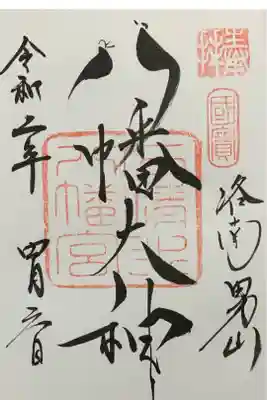 奉拝
國寶
洛南男山
八幡大神
石清水
八幡宮
令和二年 四月